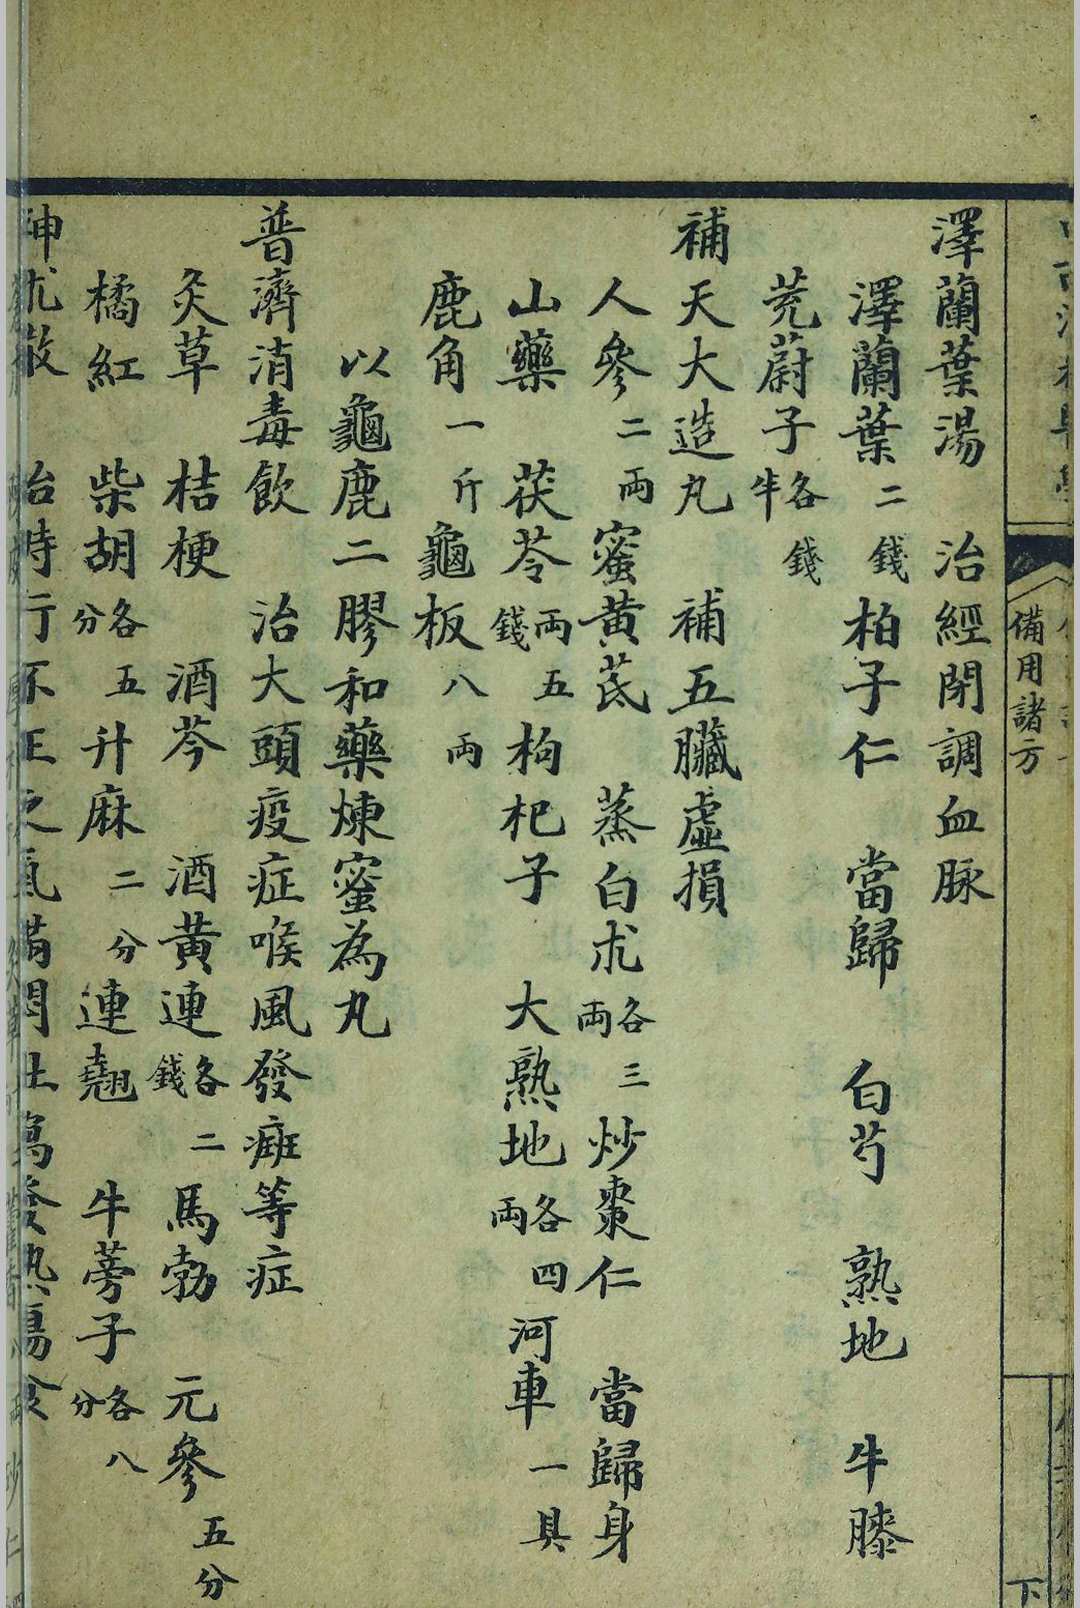 備用諸方
下
澤蘭葉湯　治經閉調血脉
澤蘭葉二錢　柏子仁　當歸　白芍　熟地　牛膝
茺蔚子各錢半
補天大造丸　補五臟虛損
人參二両　蜜黃茋　蒸白朮各三両　炒棗仁　當歸身
山藥　茯苓両五錢　枸杞子　大熟地各四両　河車一具
鹿角一斤　龜板八両
以龜鹿二膠和藥煉蜜為丸
普濟消毒飲　治大頭疫症喉風發癍等症
炙草　桔梗　酒芩　酒黃連各二錢　馬勃　元參五分
橘紅　柴胡各五分　升麻二分　連翹　牛蒡子各八分
神朮散　治時行不正之氣滿悶吐瀉發熱傷食